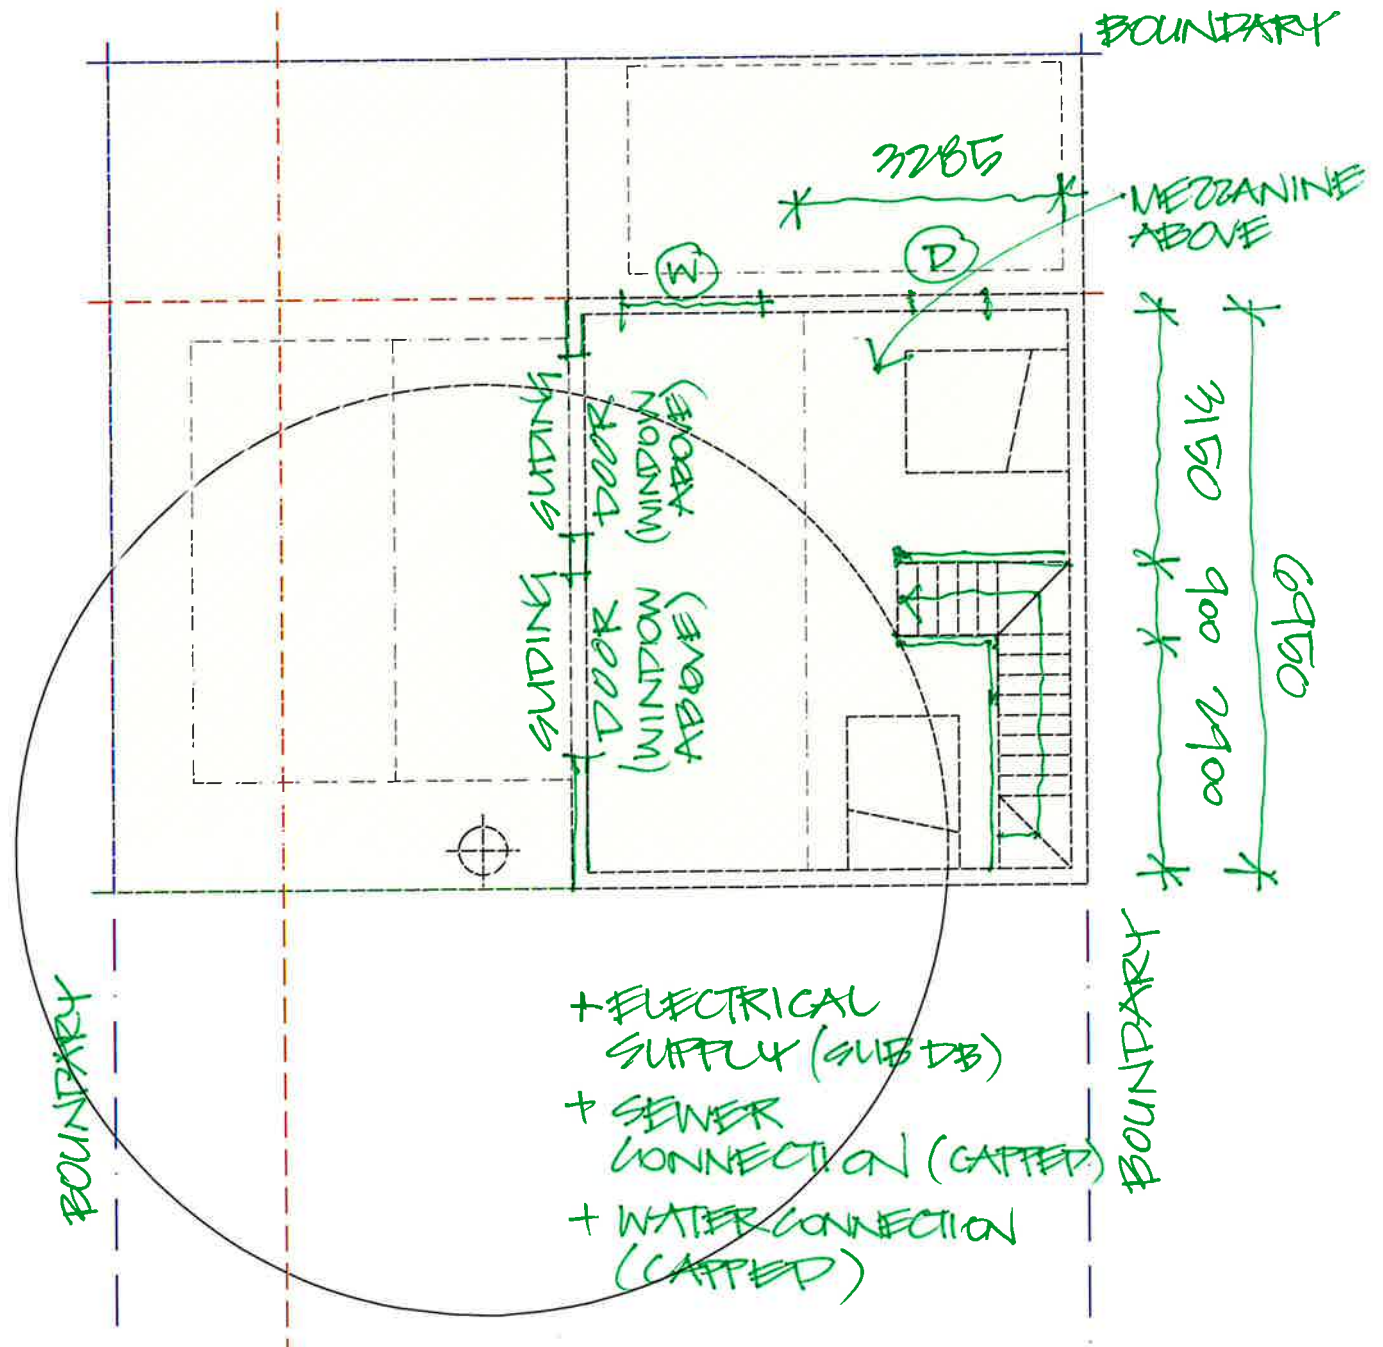 BOUNDARY
3285
MEZZANINE
ABOVE
W
D
SLIDING
DOOR
(WINDOW
ABOVE)
SLIDING
DOOR
(WINDOW
ABOVE)
3150
900
2900
6950
BOUNDARY
BOUNDARY
+ ELECTRICAL
SUPPLY (SUB DB)
+ SEWER
CONNECTION (CAPPED)
+ WATER CONNECTION
(CAPPED)